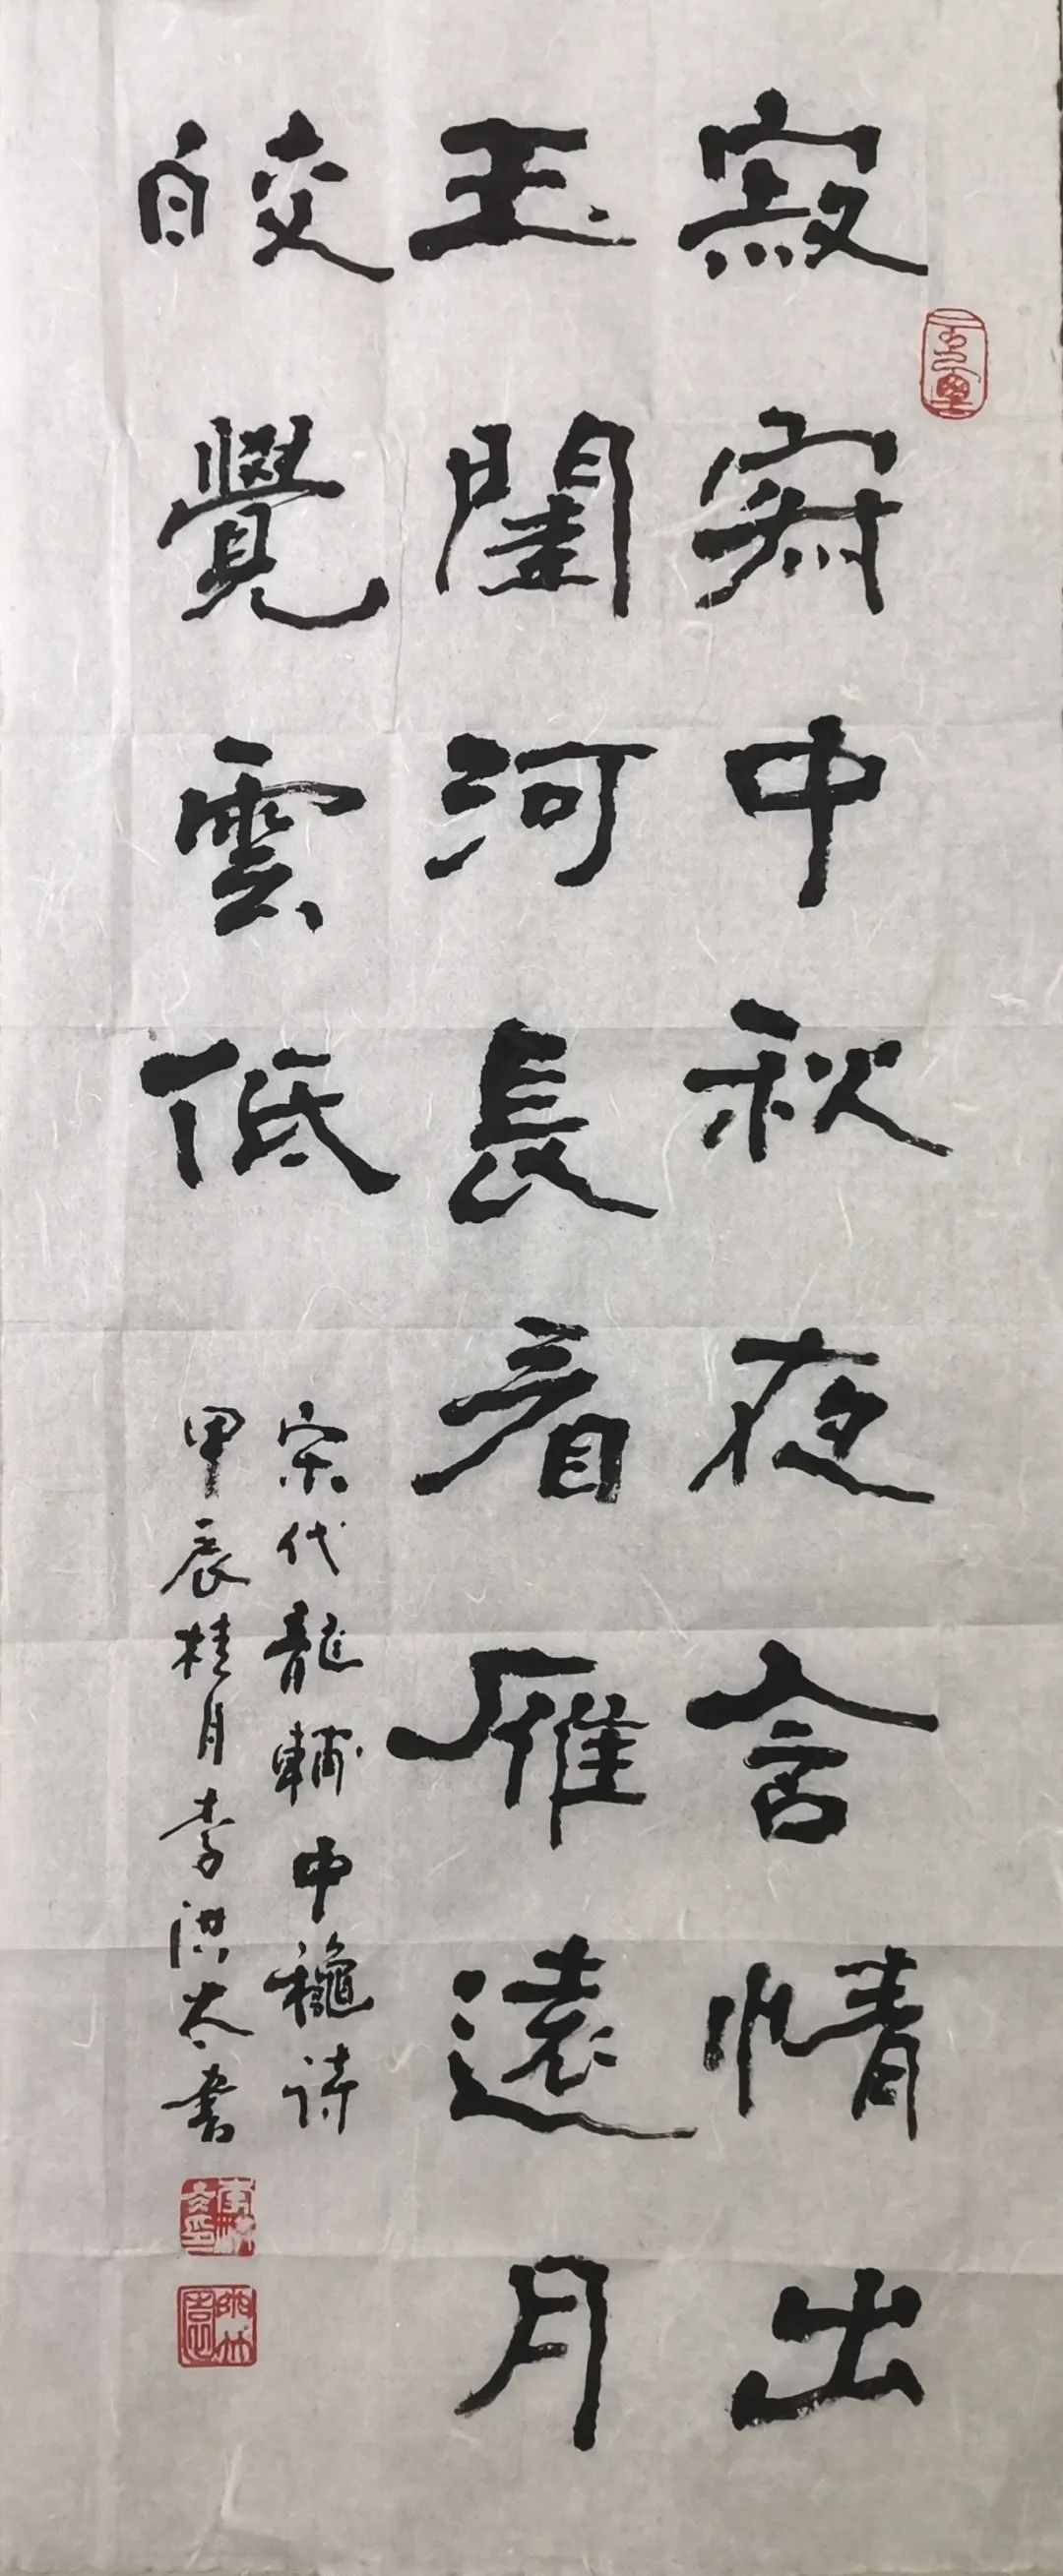 寂寂中秋夜含情出
玉閨河長看雁遠月
皎覺雲低
宋代龍輔中龝詩
甲辰桂月李洪太書